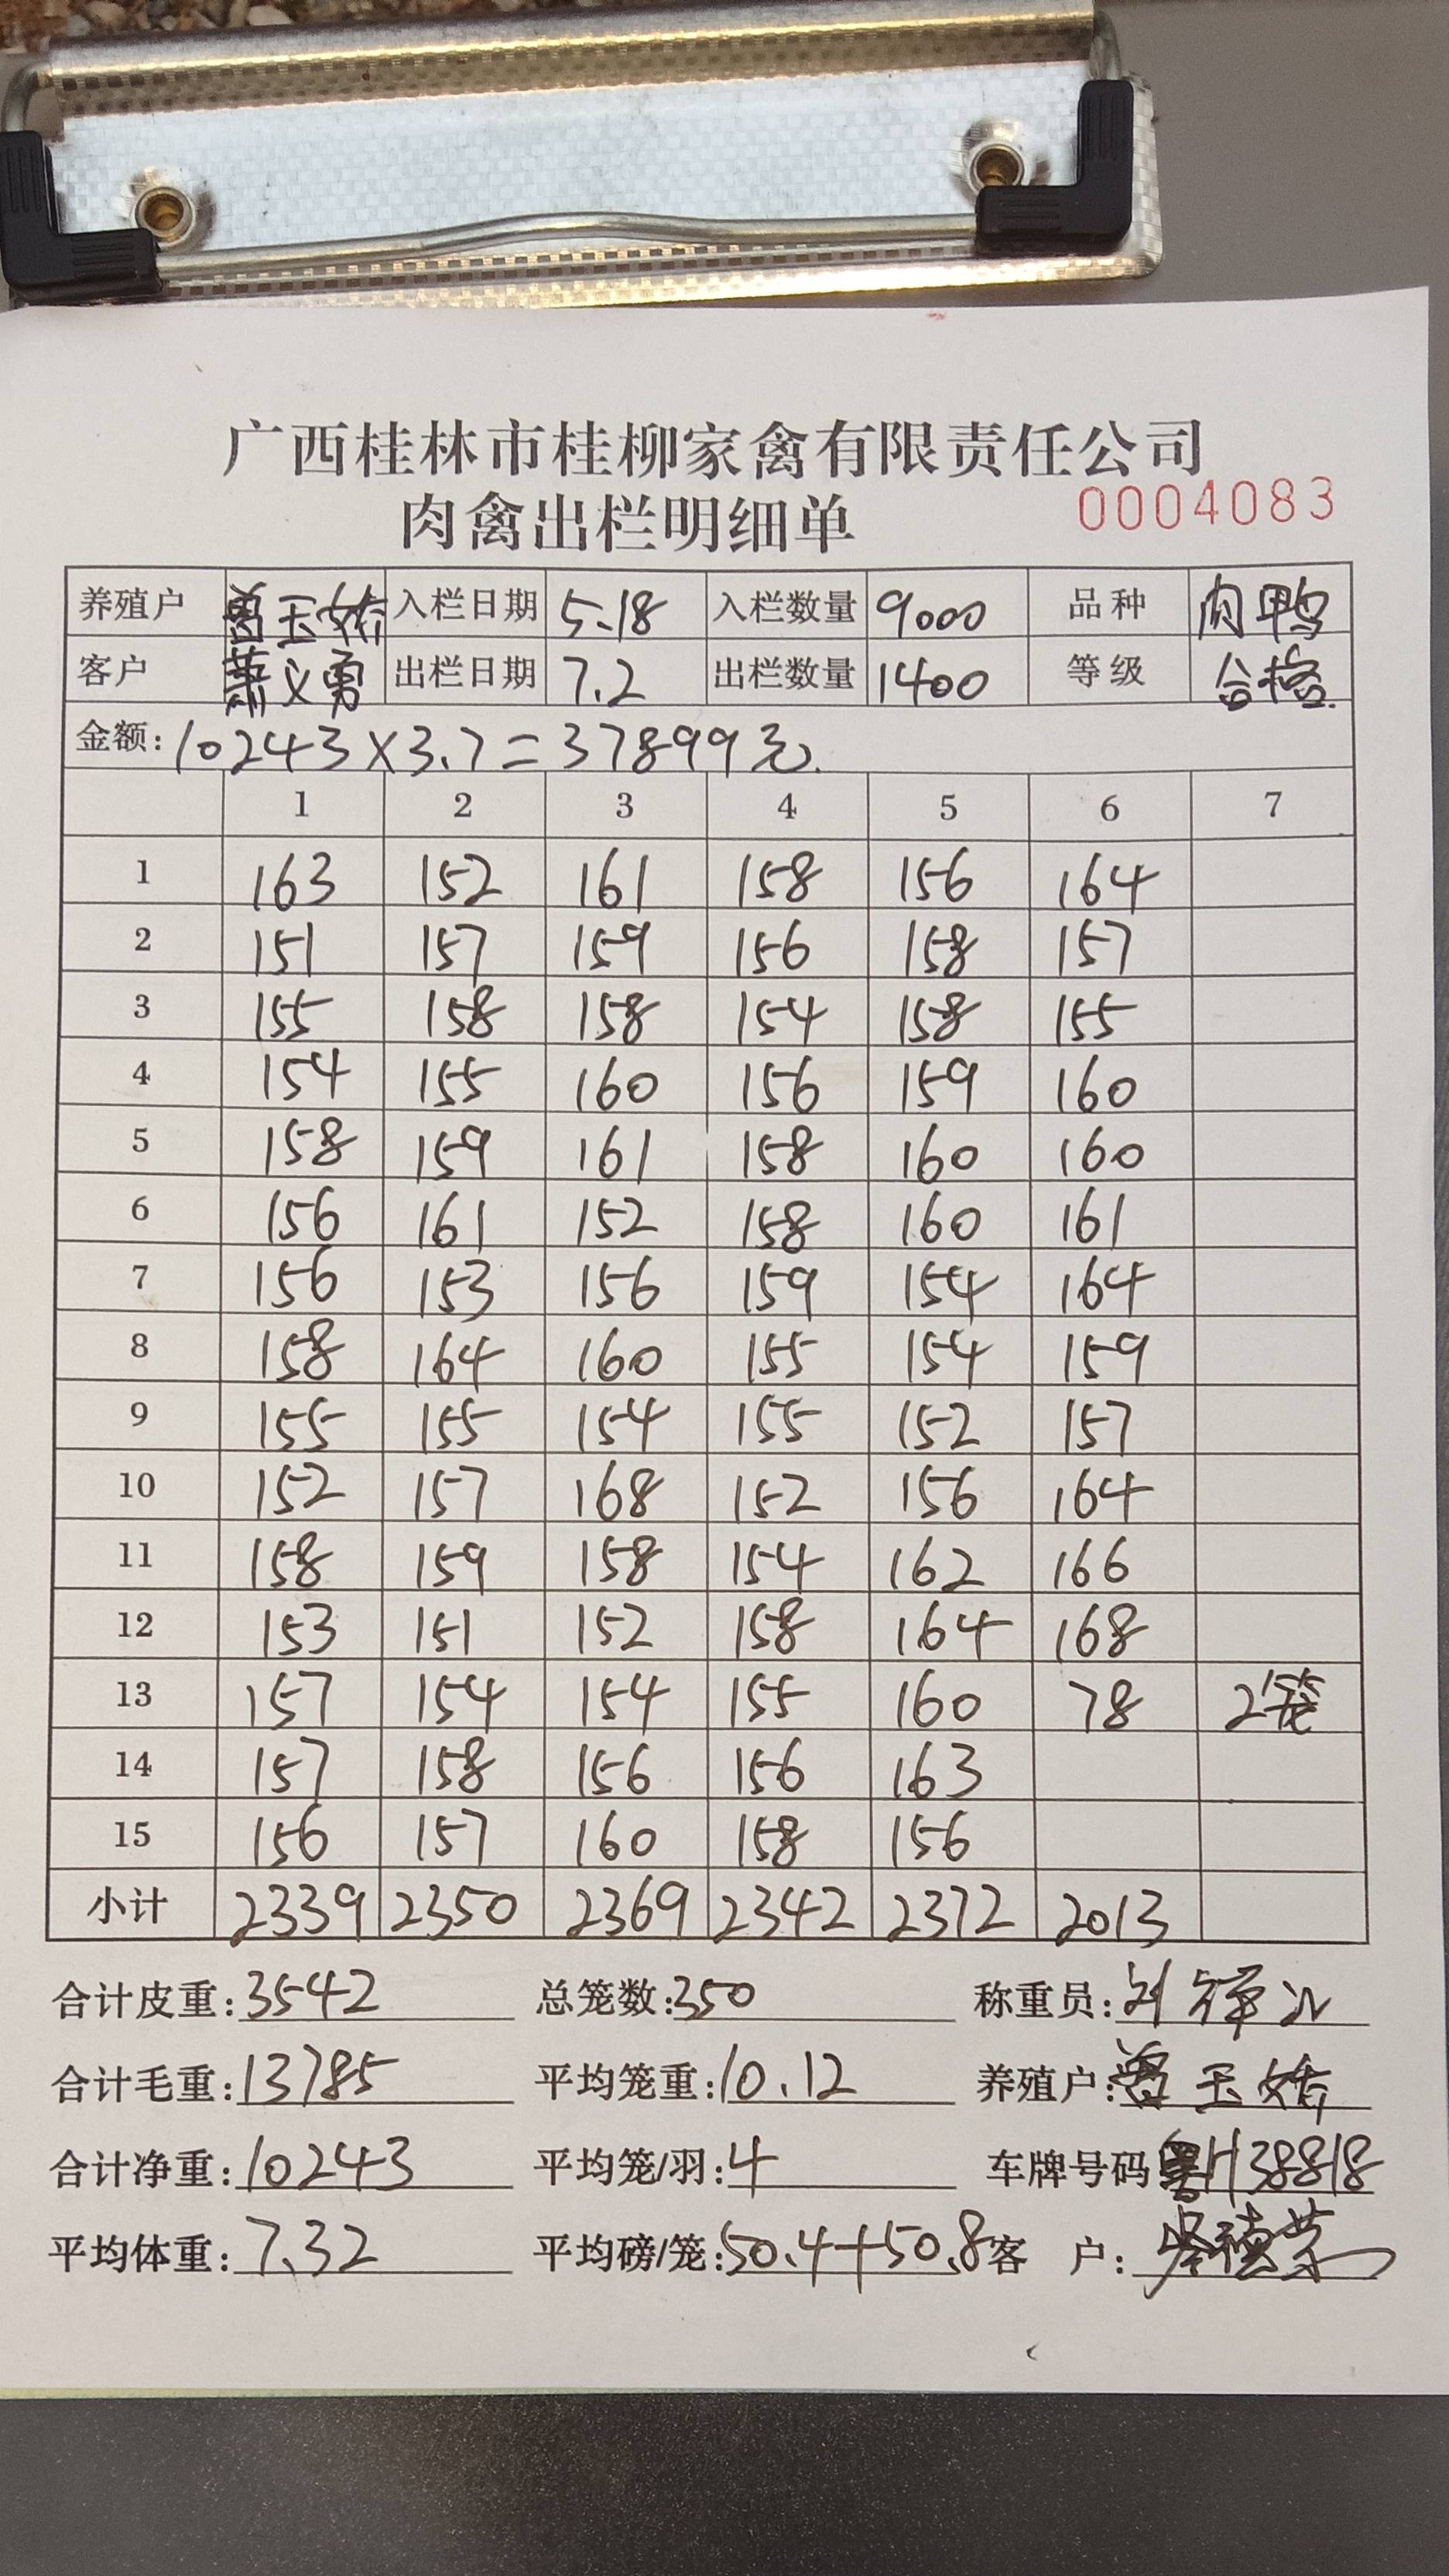 广西桂林市桂柳家禽有限责任公司
肉禽出栏明细单 0004083
养殖户 曾玉娇 入栏日期 5.18 入栏数量 9000 品种 肉鸭
客户 萧义勇 出栏日期 7.2 出栏数量 1400 等级 合格
金额: 10243×3.7=37899元
1 2 3 4 5 6 7
1 163 152 161 158 156 164
2 151 157 159 156 158 157
3 155 158 158 154 158 155
4 154 155 160 156 159 160
5 158 159 161 158 160 160
6 156 161 152 158 160 161
7 156 153 156 159 154 164
8 158 164 160 155 154 159
9 155 155 154 155 152 157
10 152 157 168 152 156 164
11 158 159 158 154 162 166
12 153 151 152 158 164 168
13 157 154 154 155 160 78 2笼
14 157 158 156 156 163
15 156 157 160 158 156
小计 2339 2350 2369 2342 2372 2013
合计皮重: 3542 总笼数: 350 称重员: 刘
合计毛重: 13785 平均笼重: 10.12 养殖户: 曾玉娇
合计净重: 10243 平均笼/羽: 4 车牌号码 粤H38818
平均体重: 7.32 平均磅/笼: 50.4+50.8 客 户: